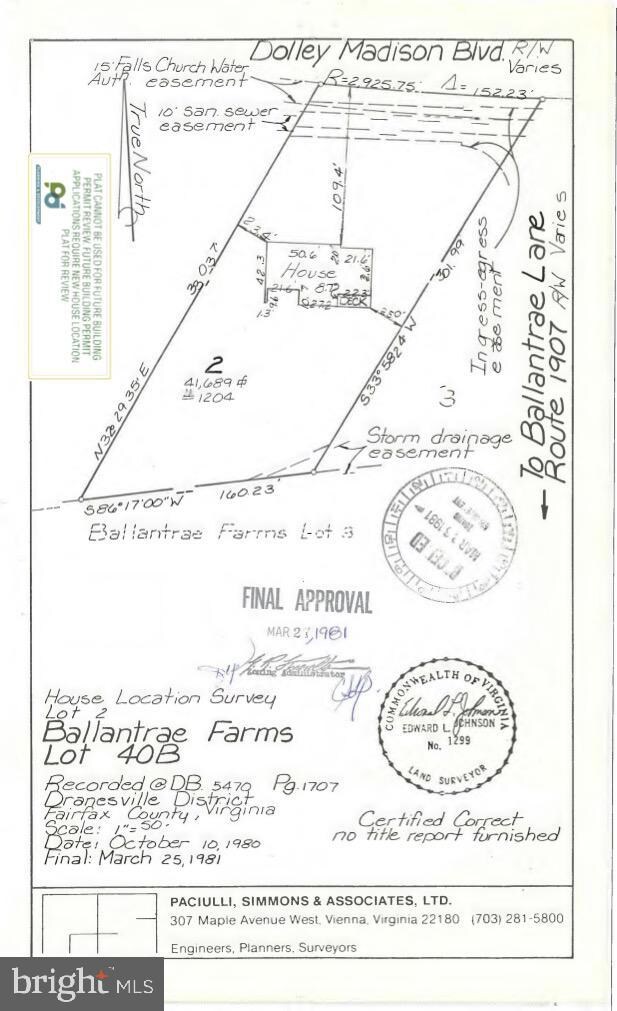 Dolley Madison Blvd. R/W
Varies
15' Falls Church Water
Auth. easement
R=2,925.75'
Δ= 152.23'
10' San. sewer
easement
True North
109.4'
PLAT CANNOT BE USED FOR FUTURE BUILDING
PERMIT REVIEW. FUTURE BUILDING PERMIT
APPLICATIONS REQUIRE NEW HOUSE LOCATION
PLAT FOR REVIEW
Ingress-egress
easement
To Ballantrae Lane
Route 1907 R/W Varies
50.6'
21.6'
House
42.3
21.6
8.7
22.3
DECK
27.2
301.99
N32°29'35"E
S33°58'24"W
2
41,689
1204
3
Storm drainage
easement
S86°17'00"W
160.23'
Ballantrae Farms Lot 3
MAR 1981
FINAL APPROVAL
MAR 27, 1981
Zoning Administrator
House Location Survey
Lot 2
Ballantrae Farms
Lot 40B
COMMONWEALTH OF VIRGINIA
Edward L. Johnson
EDWARD L. JOHNSON
No. 1299
LAND SURVEYOR
Recorded @ DB. 5470 Pg. 1707
Dranesville District
Fairfax County, Virginia
Scale: 1"=50'
Date: October 10, 1980
Final: March 25, 1981
Certified Correct
no title report furnished
PACIULLI, SIMMONS & ASSOCIATES, LTD.
307 Maple Avenue West, Vienna, Virginia 22180 (703) 281-5800
Engineers, Planners, Surveyors
bright MLS